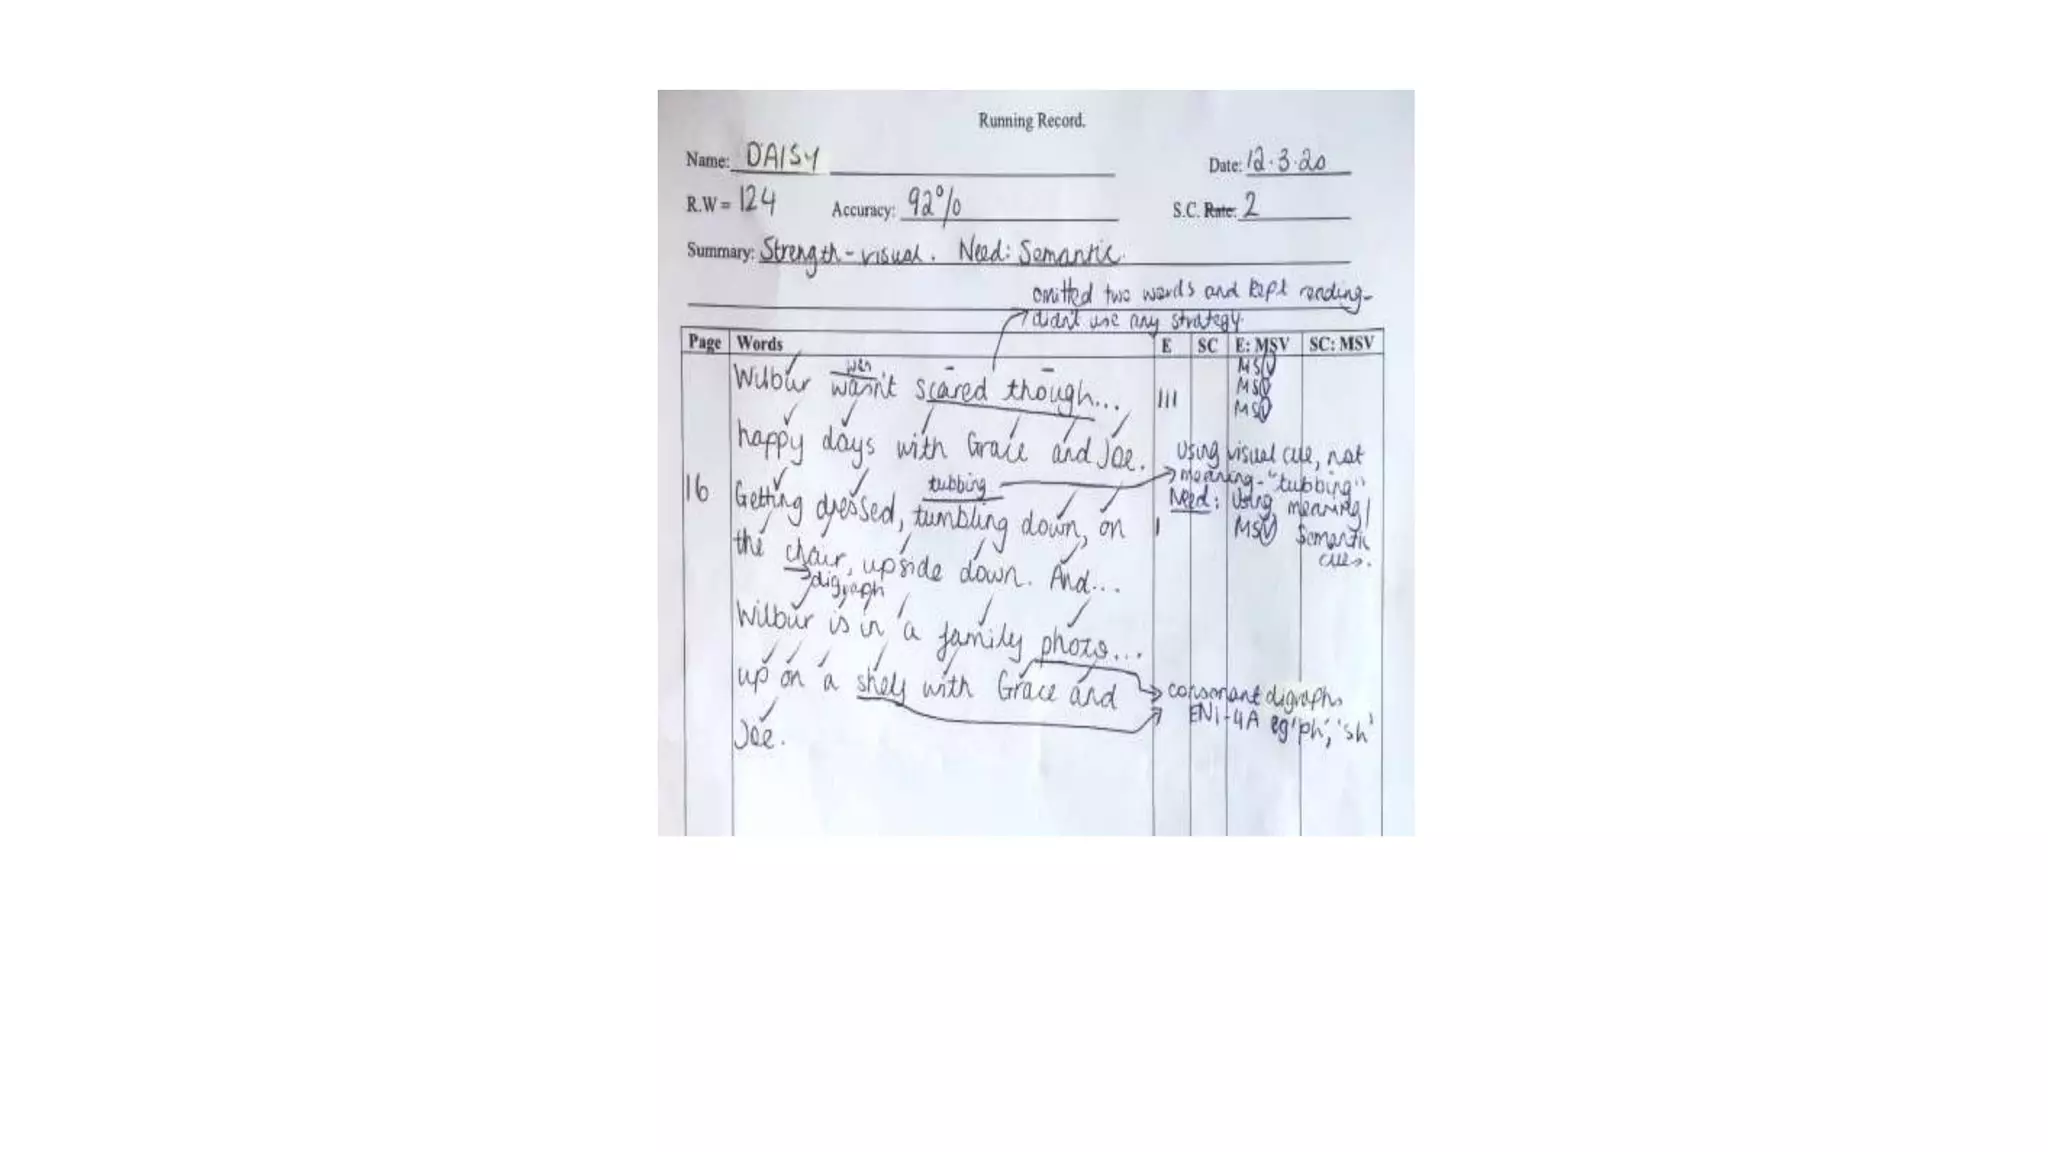 Running Record.
Name: DAISY Date: 12.3.20
R.W = 124 Accuracy: 92% S.C. Rate: 2
Summary: Strength - visual. Need: Semantic.
omitted two words and kept reading-
didn't use any strategy.
Page Words E SC E: MSV SC: MSV
MSV
MSV
MSV
Wilbur wasn't scared though... III
happy days with Grace and Joe.
using visual cue, not
meaning - "tubbing"
Need: Using meaning/
Semantic
cues.
tubbing
16 Getting dressed, tumbling down, on I MSV
the chair, upside down. And...
digraph
Wilbur is in a family photo...
up on a shelf with Grace and
Joe.
consonant digraphs
EN1-4A eg 'ph', 'sh'